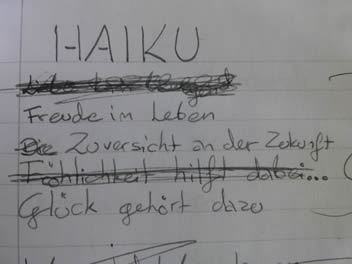 HAIKU
Freude im Leben
Zuversicht an der Zukunft
Fröhlichkeit hilft dabei...
Glück gehört dazu